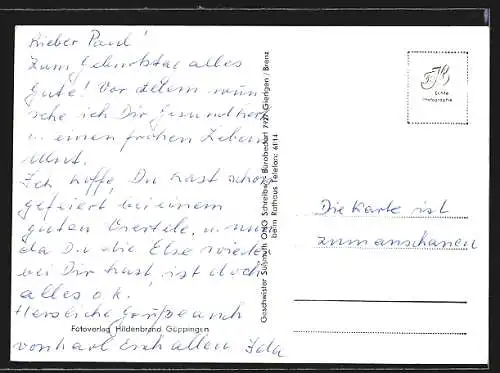 Lieber Paul!
Zum Geburtstag alles
Gute! Vor allem wün-
sche ich Dir Gesundheit
u. einen frohen Lebens
Mut.
Ich hoffe, Du hast schon
gefeiert bei einem
guten Viertele, u. nun
da Du die Else wieder
bei Dir hast, ist doch
alles o.k.
Herzliche Grüße auch
von Karl Euch allen Ida
Fotoverlag Hildenbrand Göppingen
Geschwister Süßmuth OHG Schreibw. - Bürobedarf 7927 Giengen / Brenz
beim Rathaus Telefon: 6114
Echte
Photographie
Die Karte ist
zum anschauen